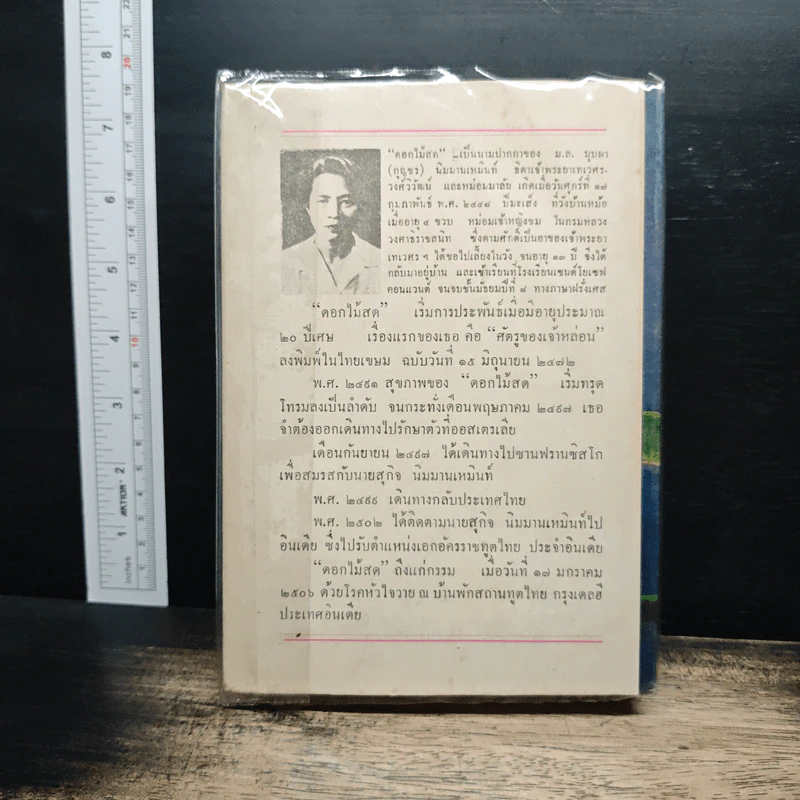 "ดอกไม้สด" เป็นนามปากกาของ ม.ล. บุบผา
(กุญชร) นิมมานเหมินท์ ธิดาเจ้าพระยาเทเวศร-
วงศ์วิวัฒน์ และหม่อมมาลัย เกิดเมื่อวันศุกร์ที่ ๑๗
กุมภาพันธ์ พ.ศ. ๒๔๔๘ ปีมะเส็ง ที่วังบ้านหม้อ
เมื่ออายุ ๔ ขวบ หม่อมเจ้าหญิงขม ในกรมหลวง
วงศาธิราชสนิท ซึ่งตามศักดิ์เป็นอาของเจ้าพระยา
เทเวศร ฯ ได้ขอไปเลี้ยงในวัง จนอายุ ๑๓ ปี จึงได้
กลับมาอยู่บ้าน และเข้าเรียนที่โรงเรียนเซนต์โยเซฟ
คอนแวนต์ จนจบชั้นมัธยมปีที่ ๘ ทางภาษาฝรั่งเศส
"ดอกไม้สด" เริ่มการประพันธ์เมื่อมีอายุประมาณ
๒๐ ปีเศษ เรื่องแรกของเธอ คือ "ศัตรูของเจ้าหล่อน"
ลงพิมพ์ในไทยเขษม ฉบับวันที่ ๑๕ มิถุนายน ๒๔๗๒
พ.ศ. ๒๔๙๑ สุขภาพของ "ดอกไม้สด" เริ่มทรุด
โทรมลงเป็นลำดับ จนกระทั่งเดือนพฤษภาคม ๒๔๙๗ เธอ
จำต้องออกเดินทางไปรักษาตัวที่ออสเตรเลีย
เดือนกันยายน ๒๔๙๗ ได้เดินทางไปซานฟรานซิสโก
เพื่อสมรสกับนายสุกิจ นิมมานเหมินท์
พ.ศ. ๒๔๙๙ เดินทางกลับประเทศไทย
พ.ศ. ๒๕๐๒ ได้ติดตามนายสุกิจ นิมมานเหมินท์ไป
อินเดีย ซึ่งไปรับตำแหน่งเอกอัครราชทูตไทย ประจำอินเดีย
"ดอกไม้สด" ถึงแก่กรรม เมื่อวันที่ ๑๗ มกราคม
๒๕๐๖ ด้วยโรคหัวใจวาย ณ บ้านพักสถานทูตไทย กรุงเดลฮี
ประเทศอินเดีย
8
7
5
4
3
2
1
20
10
inches